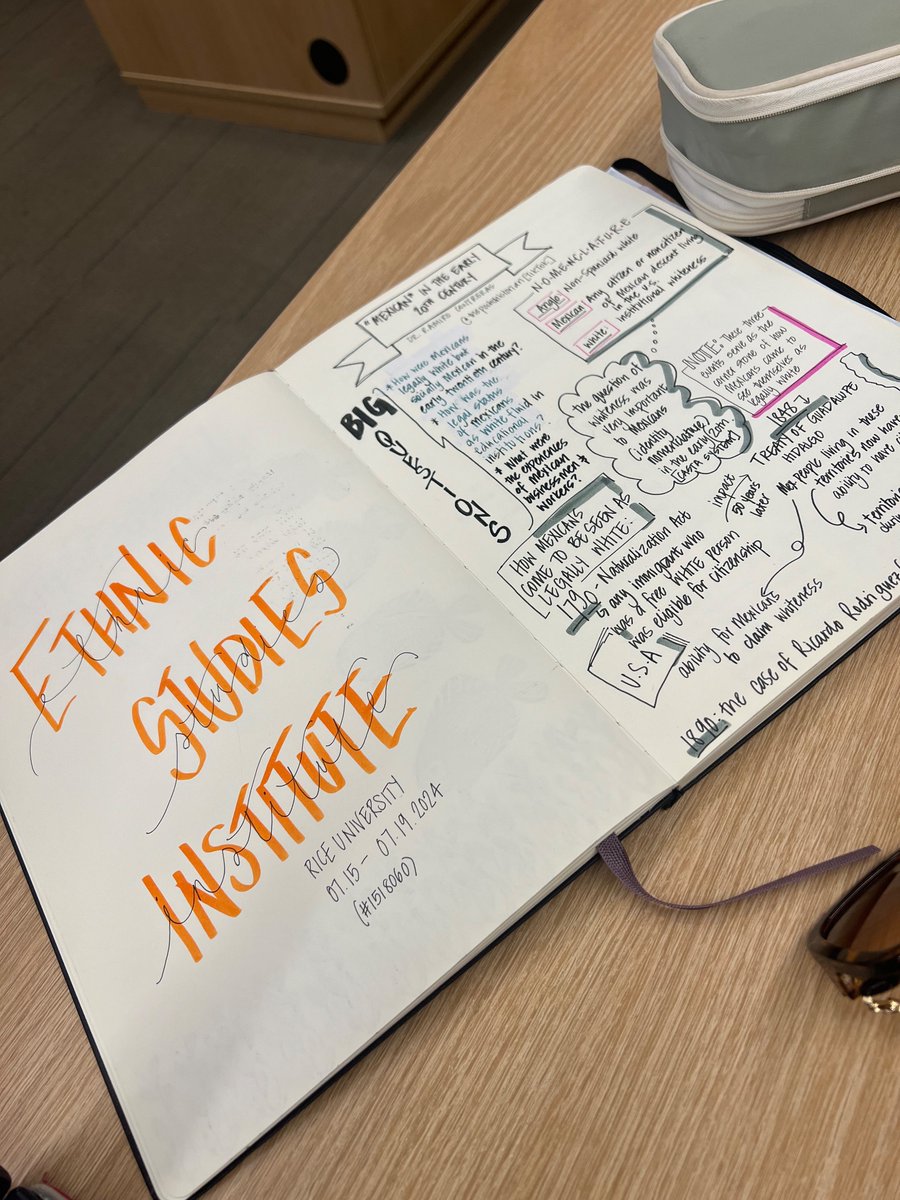 ETHNIC
ethnic
STUDIES
studies
INSTITUTE
institute
RICE UNIVERSITY
07.15 - 07.19.2024
(#1518060)
"MEXICAN" IN THE EARLY
20TH CENTURY
DR. RAMIRO CONTRERAS
BIG
QUESTIONS
* How were Mexicans
legally white but
socially Mexican in the
early twentieth century?
* How was the
legal status
of Mexicans
as white fluid in
educational
institutions?
* What were
the experiences
of Mexican
businessmen &
workers?
N·O·M·E·N·C·L·A·T·U·R·E
Anglo Non-Spaniard white
Mexican Any citizen or noncitizen
of Mexican descent living
in the U.S.
white institutional whiteness
The question of
whiteness was
very important
to Mexicans
(identity
in the early 20th
(casta system)
"NOTE": These three
events serve as the
corner stone of how
Mexicans came to
see themselves as
legally white
HOW MEXICANS
CAME TO BE SEEN AS
LEGALLY WHITE:
1790 - Naturalization Act
↳ any immigrant who
was a free WHITE person
was eligible for citizenship
U.S.A
impact
50 years
later
1848
TREATY OF GUADALUPE
HIDALGO
people living in these
territories now have
ability to have
ability for Mexicans
to claim whiteness
1890: the case of Ricardo Rodriguez